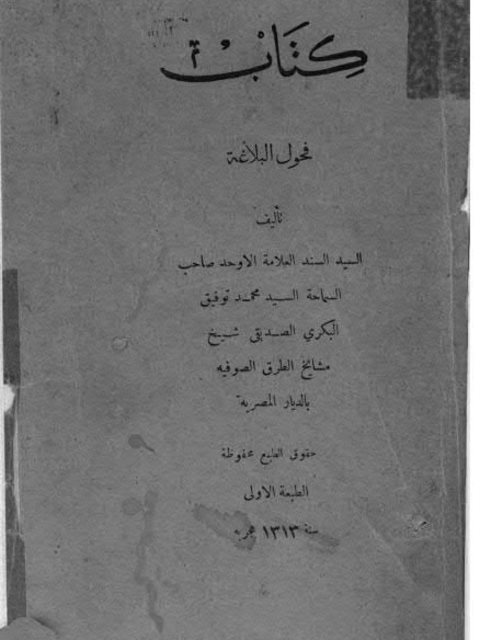 كِتَابْ
فحول البلاغة
تأليف
السيد السند العلامة الاوحد صاحب
السماحة السيد محمد توفيق
البكري الصديقي شيخ
مشايخ الطرق الصوفيه
بالديار المصريه
حقوق الطبع محفوظة
الطبعة الاولى
سنة ١٣١٣ هجريه